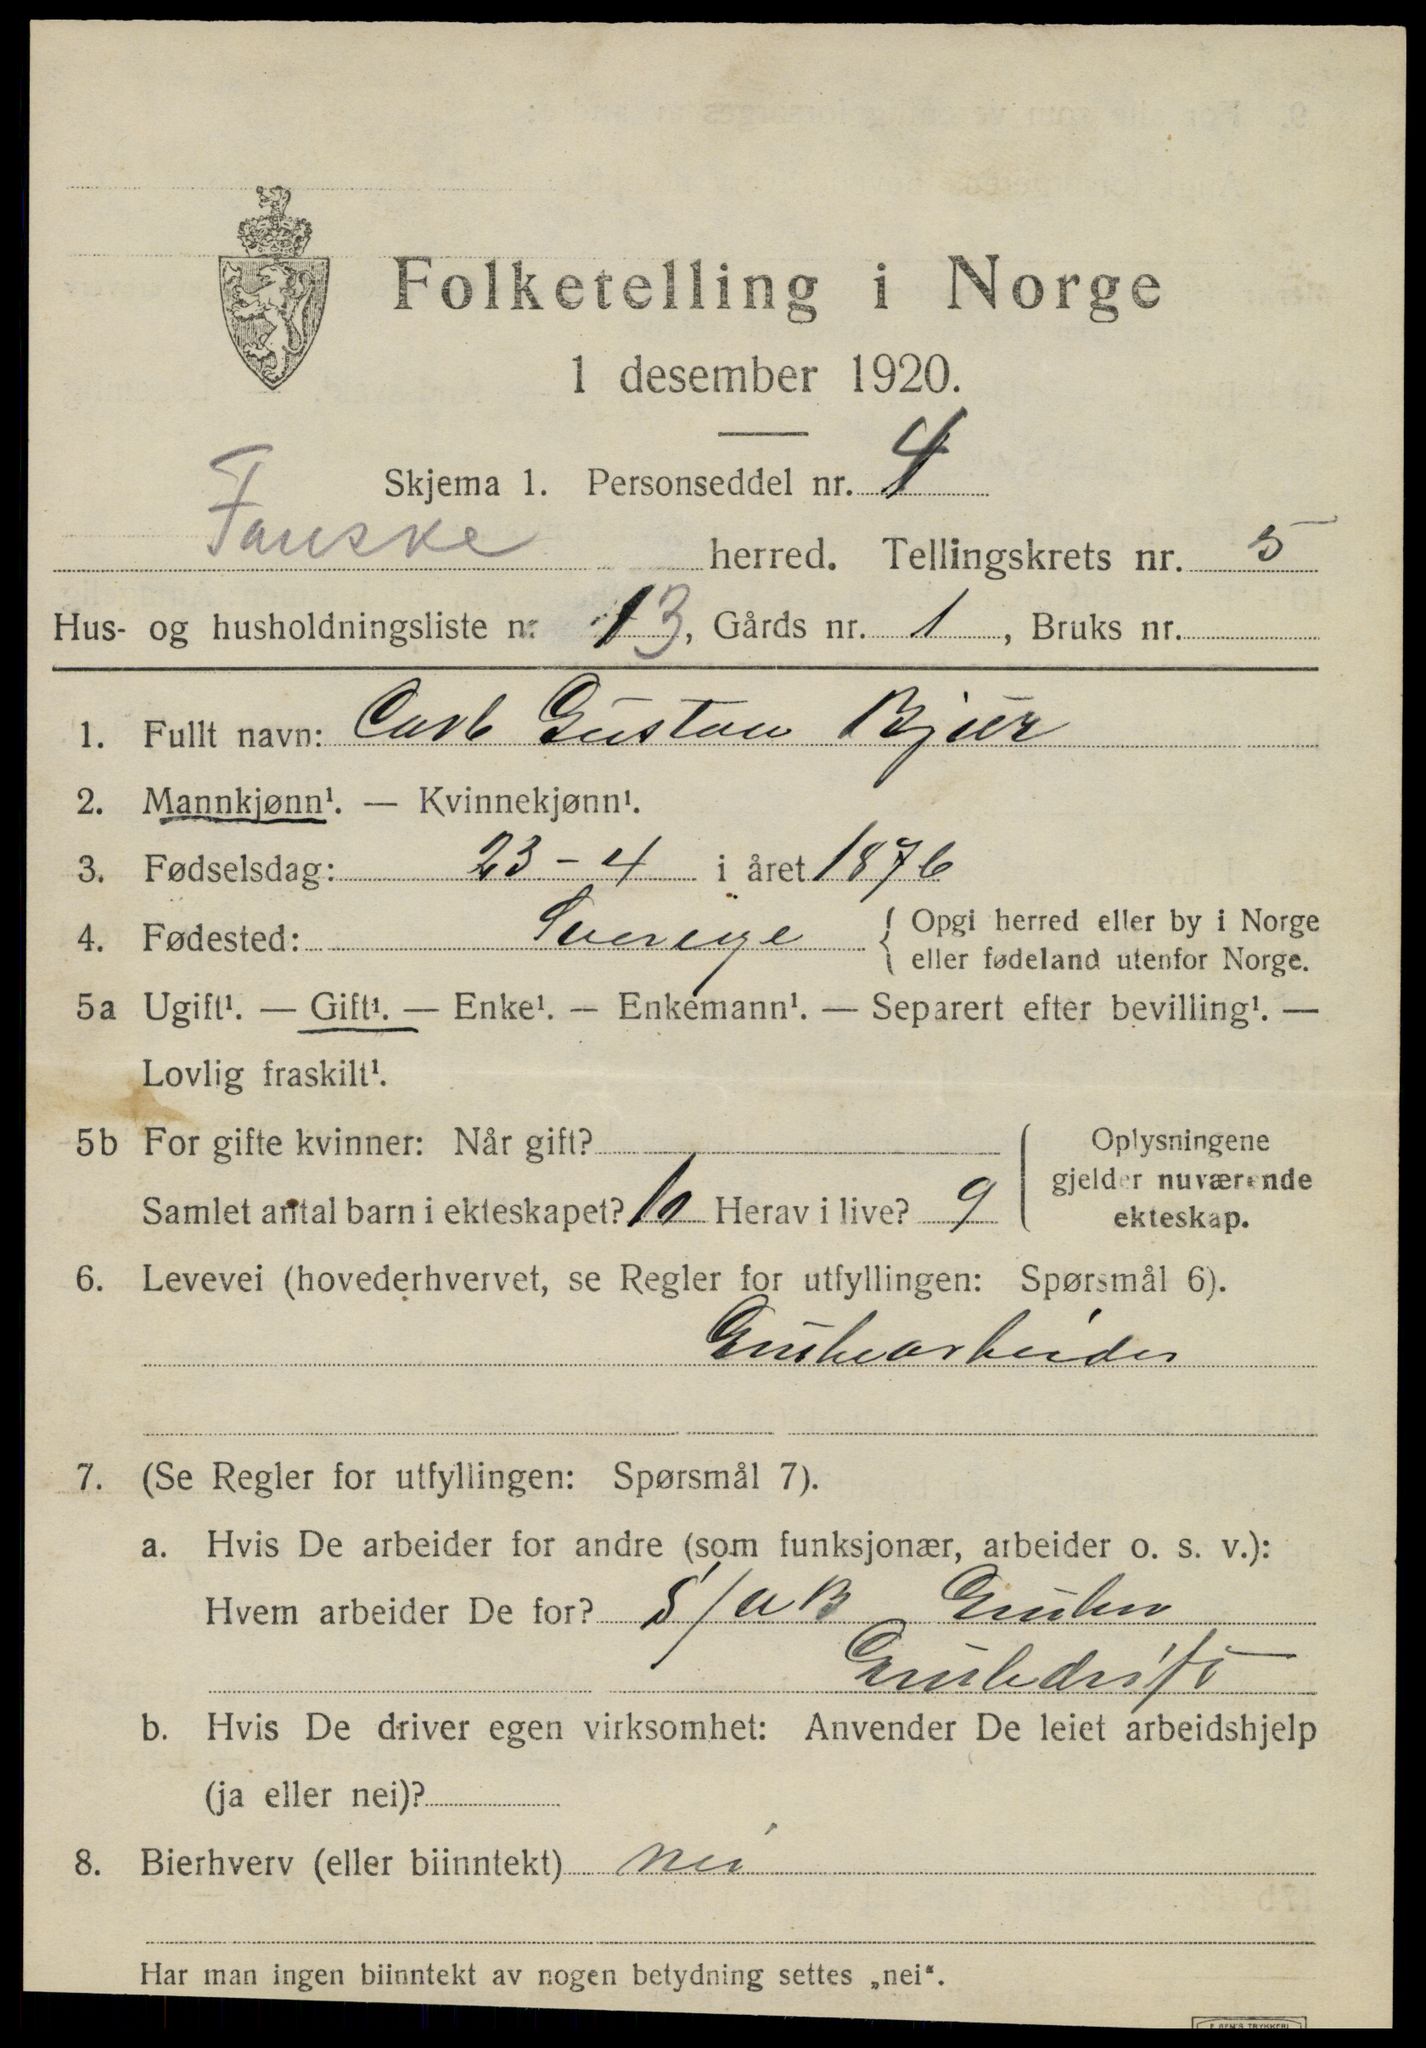 Folketelling i Norge
1 desember 1920.
Skjema 1. Personseddel nr. 4
Fauske herred. Tellingskrets nr. 5
Hus- og husholdningsliste nr 13, Gårds nr. 1, Bruks nr.
1. Fullt navn: Carl Gustav Bjür
2. Mannkjønn¹. — Kvinnekjønn¹.
3. Fødselsdag: 23-4 i året 1876
4. Fødested: Sverige { Opgi herred eller by i Norge
eller fødeland utenfor Norge.
5a Ugift¹. — Gift¹. — Enke¹. — Enkemann¹. — Separert efter bevilling¹. —
Lovlig fraskilt¹.
5b For gifte kvinner: Når gift?
Samlet antal barn i ekteskapet? 10 Herav i live? 9
Oplysningene
gjelder nuværende
ekteskap.
6. Levevei (hovederhvervet, se Regler for utfyllingen: Spørsmål 6).
Grubearbeider
7. (Se Regler for utfyllingen: Spørsmål 7).
a. Hvis De arbeider for andre (som funksjonær, arbeider o. s. v.):
Hvem arbeider De for? S/AB Gruber
Grubedrift
b. Hvis De driver egen virksomhet: Anvender De leiet arbeidshjelp
(ja eller nei)?
8. Bierhverv (eller biinntekt) nei
Har man ingen biinntekt av nogen betydning settes „nei“.